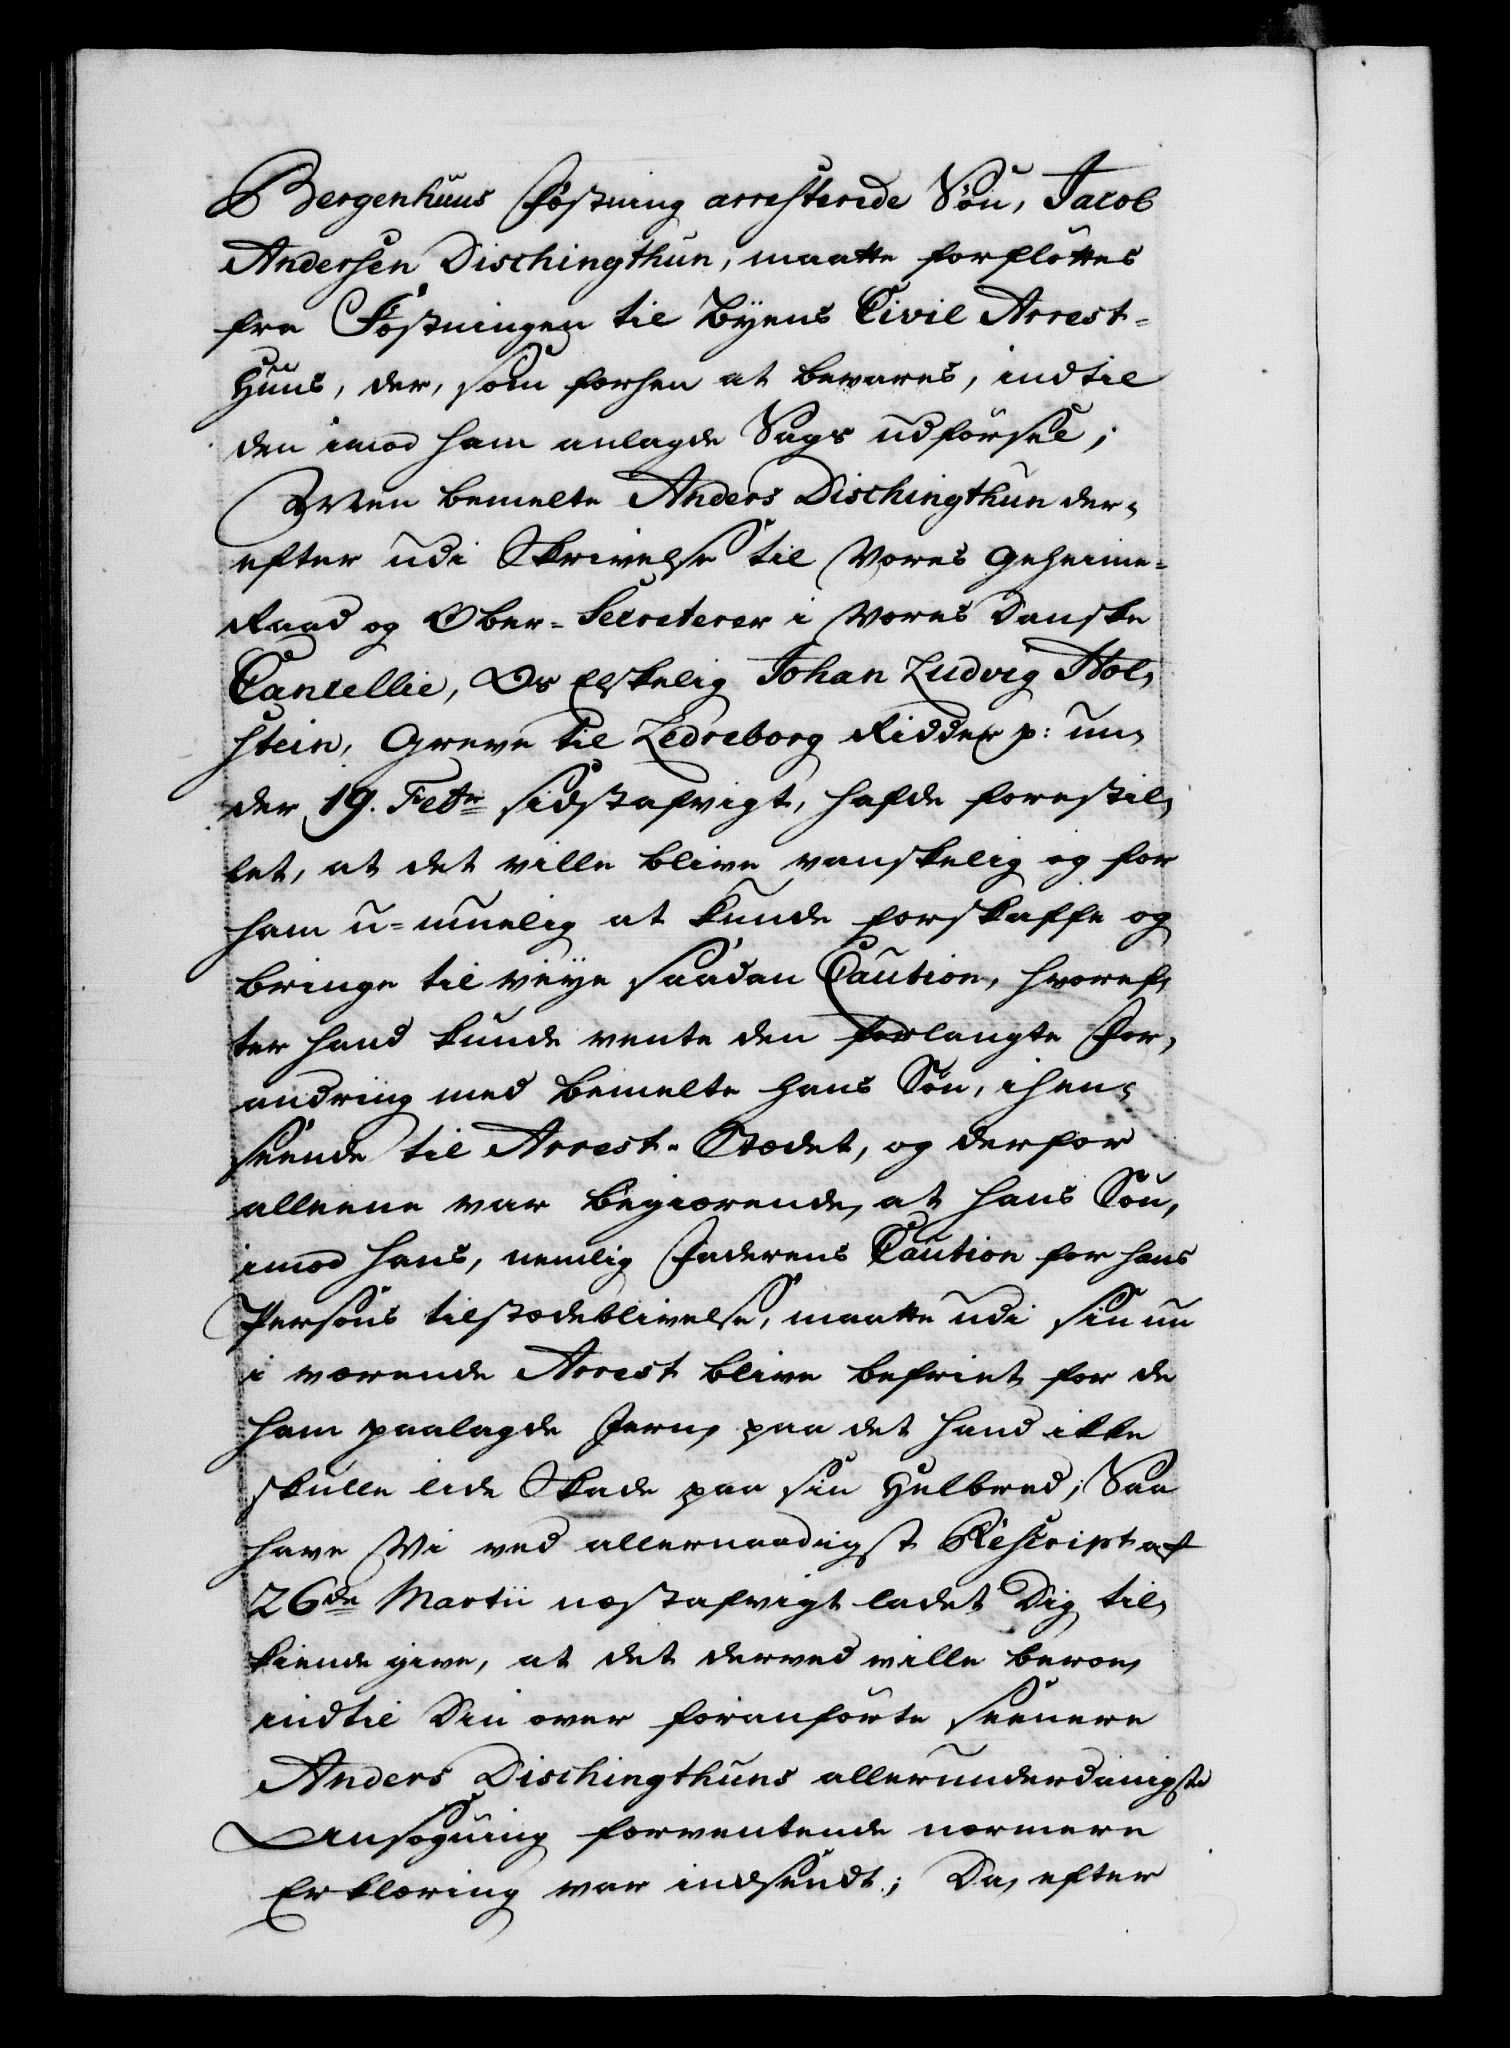 Bergenhuus Fæstning arresterede Søn, Jacob
Andersen Dischingthun, maatte forfløttes
fra Fæstningen til Byens Civil Arrest-
Huus, der, som forhen at bevares, indtil
den imod ham anlagde Sags udførsel;
Men bemelte Anders Dischingthun der-
efter udi Skrivelse til Vores Geheime-
Raad og Ober-Secreterer i Vores Danske
Cancellie, Os Elskelig Johan Ludvig Hol-
stein, Greve til Ledreborg Ridder p: un-
der 19. Febr sidstafvigt, hafde forestil-
let, at det ville blive vanskelig og for
ham u-muelig at kunde forskaffe og
bringe til veye saadan Caution, hvoref-
ter hand kunde vente den forlangte For-
andring med bemelte hans Søn, i hen-
seende til Arrest-Stædet, og derfor
alleene var begiærende, at hans Søn,
imod hans, nemlig Faderens Caution for hans
Persons tilstædeblivelse, maatte udi sin nu
i værende Arrest blive befriet for de
ham paalagde Jern, paa det hand ikke
skulle lide Skade paa sin Helbred; Saa
have Vi ved allernaadigst Rescript af
26de Martii næstafvigt ladet Dig til-
kiende give, at det derved ville beroe,
indtil Din over foranførte seenere
Anders Dischingthuns allerunderdanigste
Ansøgning forventende nærmere
Erklæring var indsendt; Da, efter